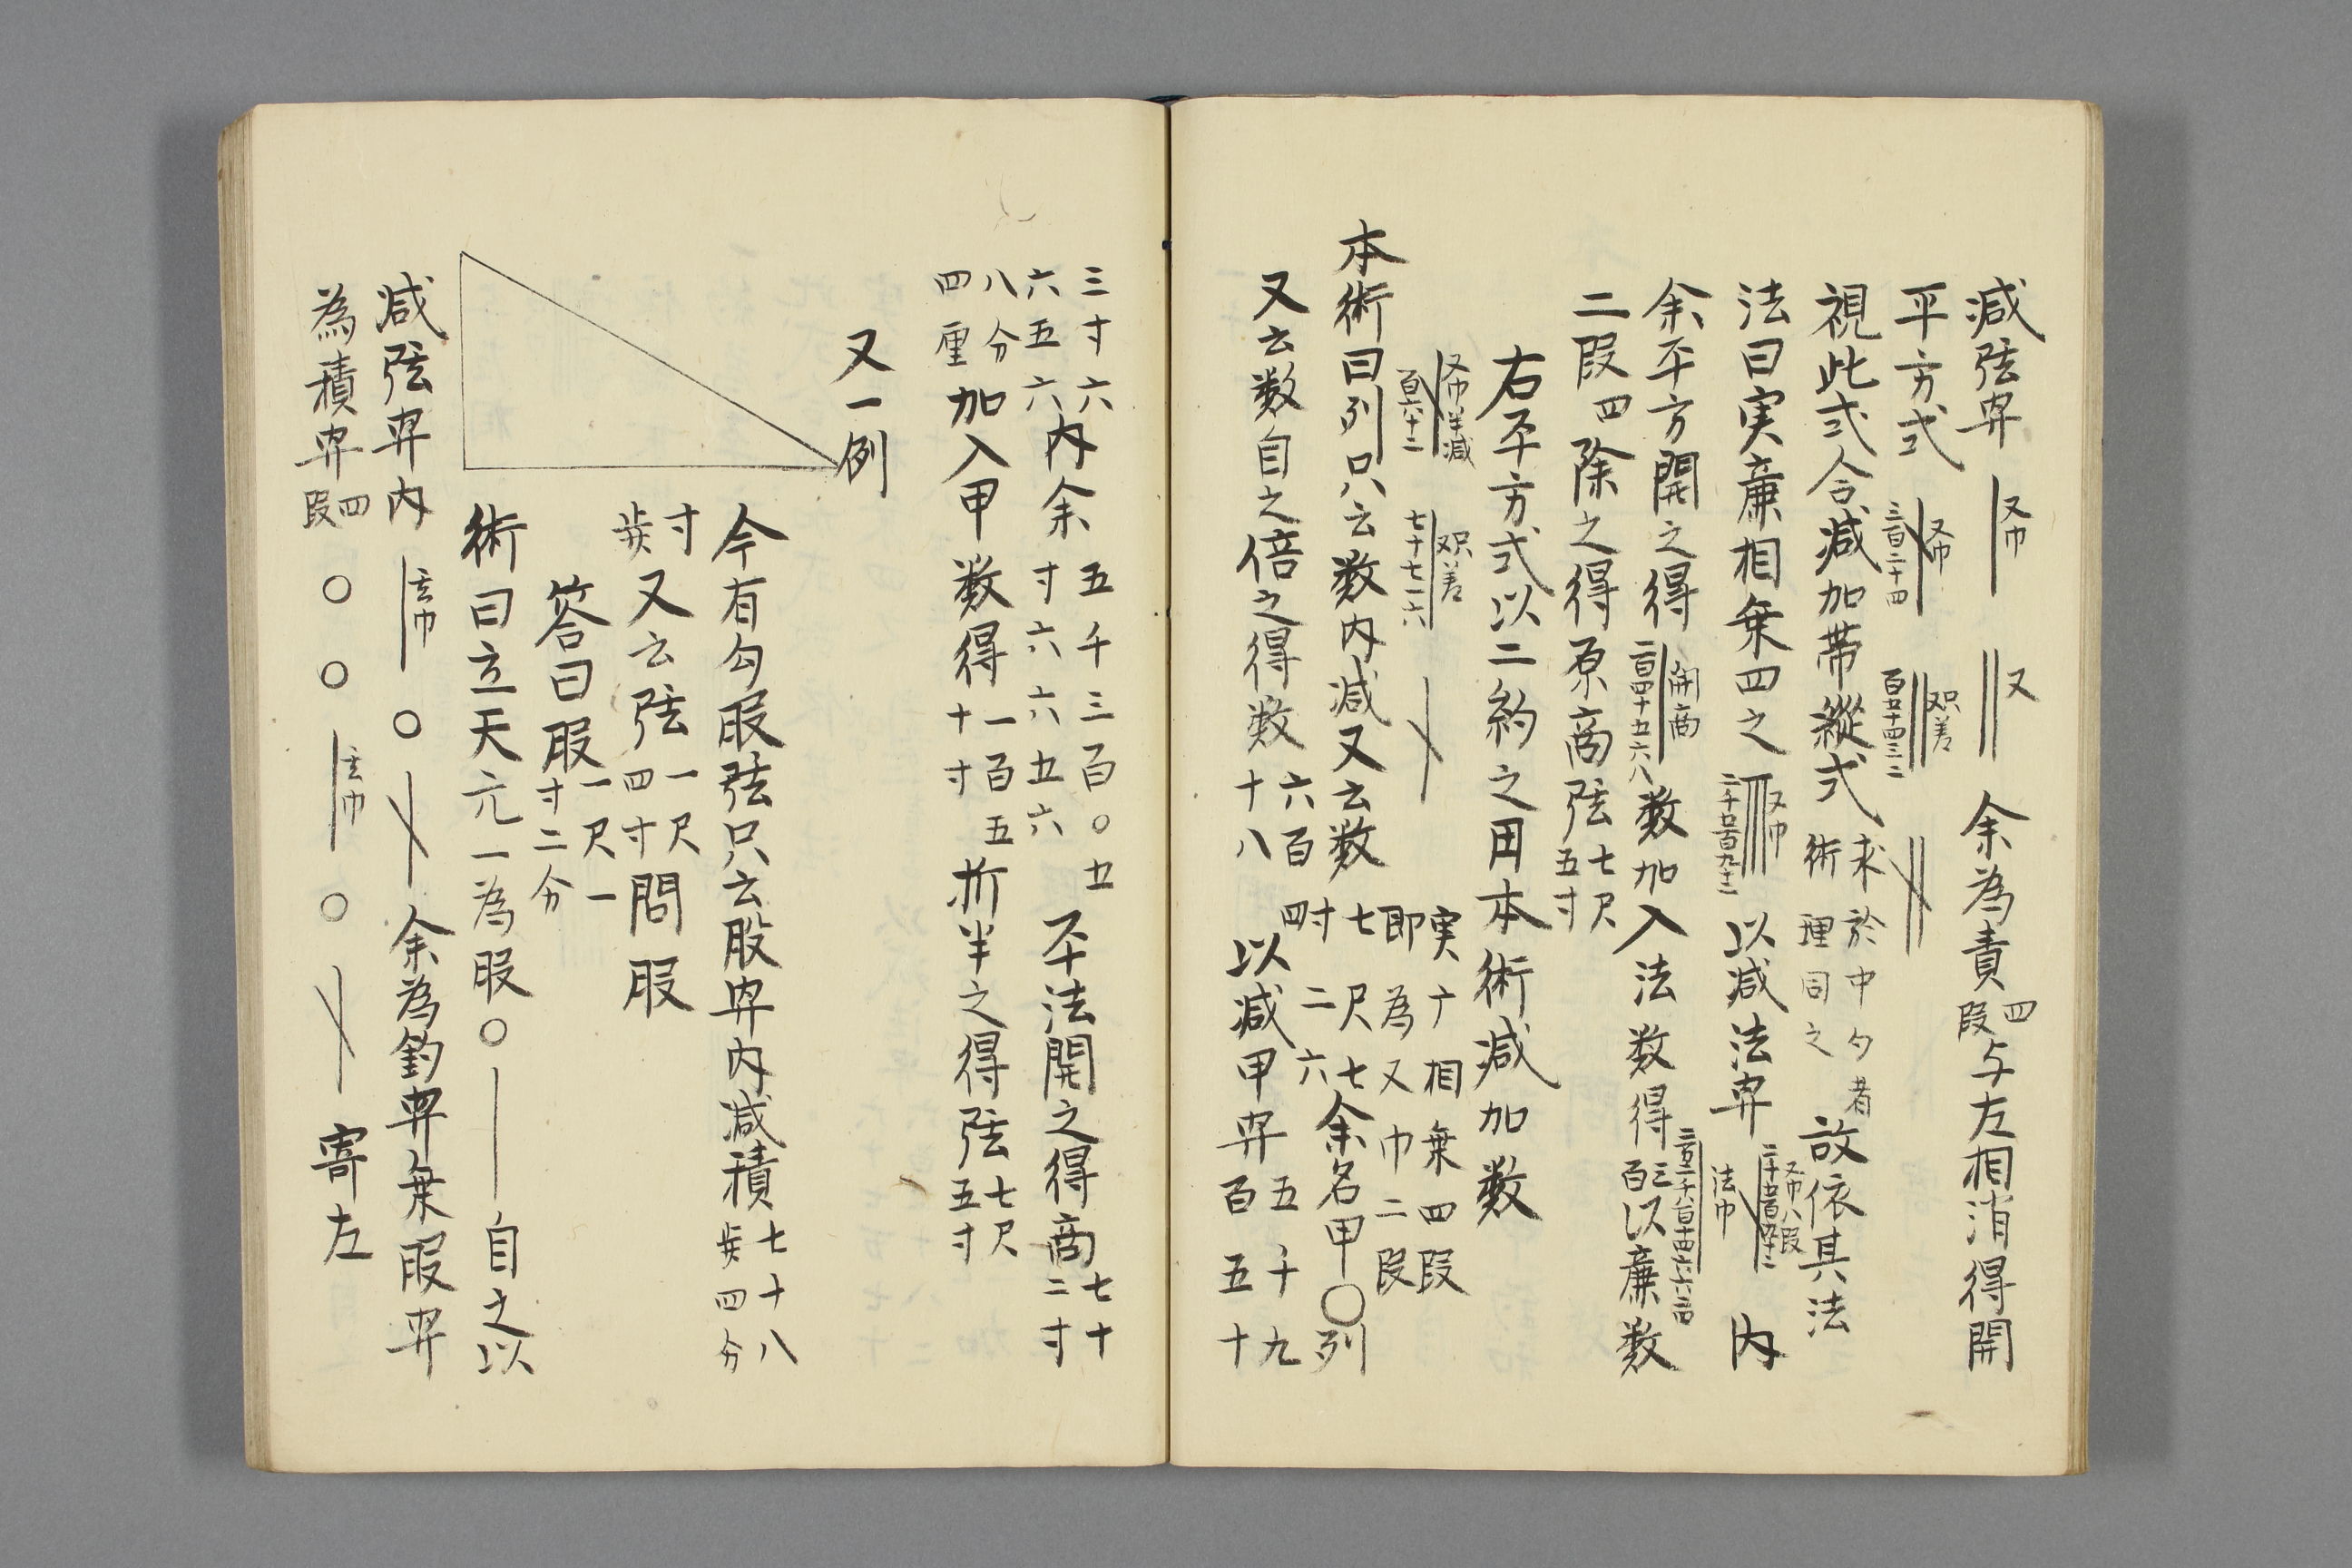 減弦冪 又巾 又 余為責四段与左相消得開
平方式 又巾 三百二十四 只又差 百五十四三二
視此式合減加帯縦式求於中勾者術理同之故依其法
法曰実廉相乗四之 又巾 以減法冪 法巾 内
余平方開之得 開商 二百四十五六八 数加入法数得三百以廉数
二段四除之得原商弦七尺五寸
右平方式以二約之用本術減加数
又巾半減 百六十二 只又差 七十七一六
実廉相乗四段即為又巾二段
本術曰列只云数内減又云数七尺七寸二六余名甲〇列
又云数自之倍之得数六百四十八以減甲冪五千九百五十
三寸六六五六内余五千三百〇五寸六六五六平法開之得商七十二寸
八分四厘加入甲数得一百五十寸折半之得弦七尺五寸
又一例
今有勾股弦只云股冪内減積七十八歩四分
寸歩又云弦一尺四寸問股
答曰股一尺一寸二分
術曰立天元一為股〇 自之以
減弦冪内 玄巾 〇 余為釣冪乗股冪
為積冪四段 〇 〇 玄巾 〇 寄左